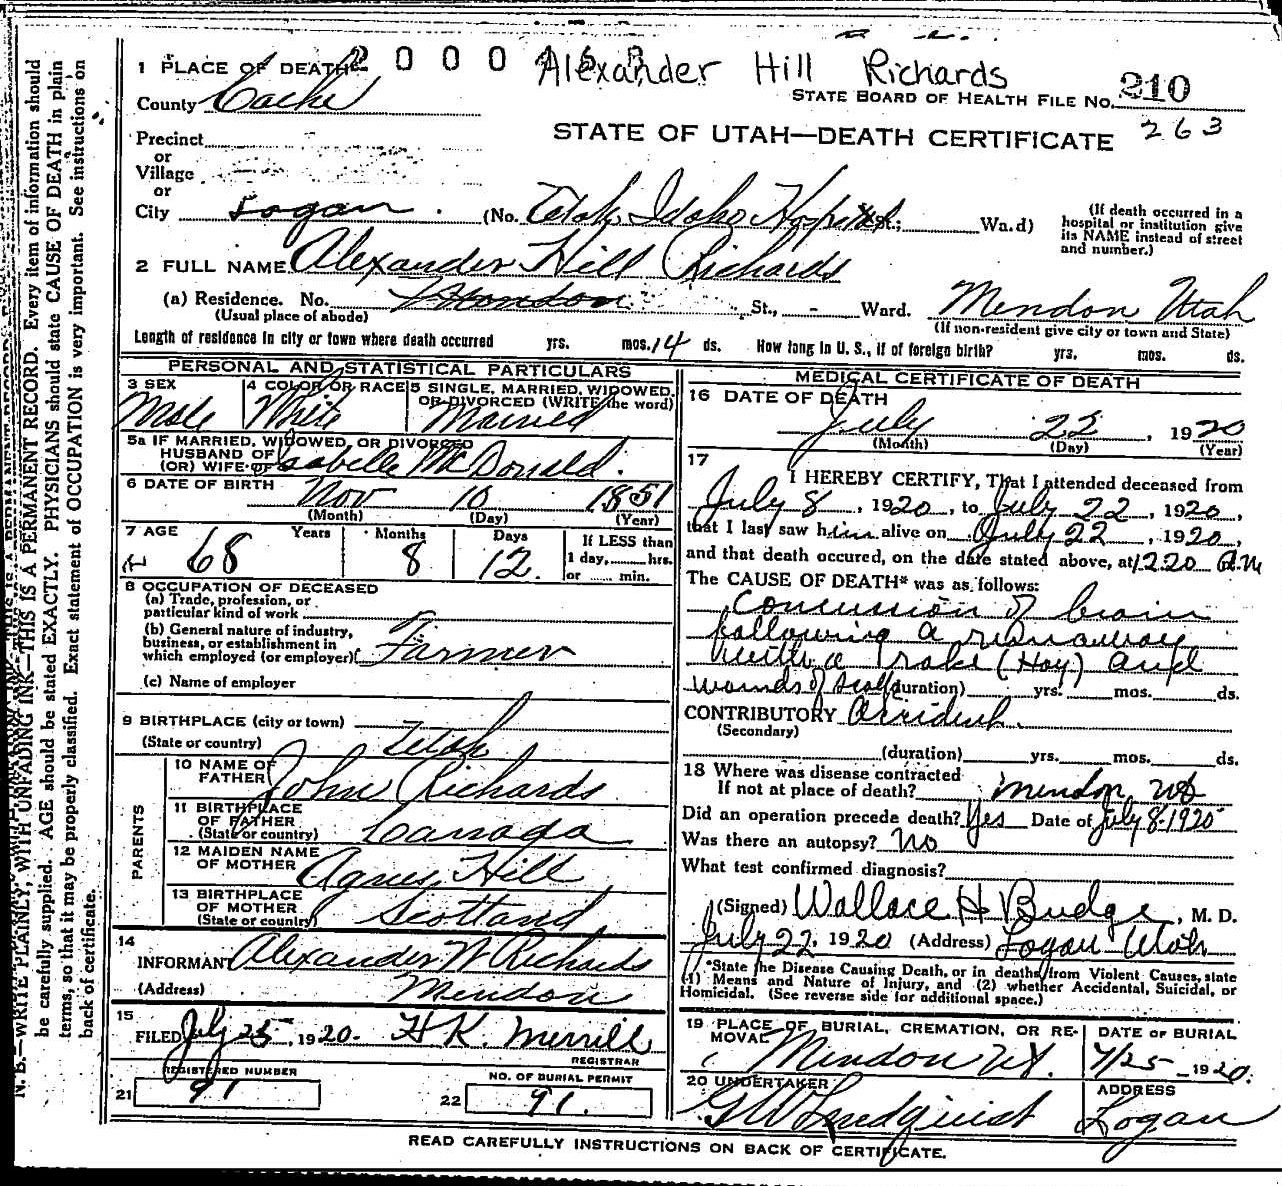 2 0 0 0
Alexander Hill Richards
1 PLACE OF DEATH
County Cache
STATE BOARD OF HEALTH FILE No. 210
263
STATE OF UTAH—DEATH CERTIFICATE
Precinct
or
Village
or
City Logan. (No. Utah Idaho Hospital St.; Wa.d)
(If death occurred in a
hospital or institution give
its NAME instead of street
and number.)
2 FULL NAME Alexander Hill Richards
(a) Residence. No. Mendon St., - Ward. Mendon Utah
(Usual place of abode) (If non-resident give city or town and State)
Length of residence in city or town where death occurred yrs. mos. 14 ds. How long in U. S., if of foreign birth? yrs. mos. ds.
PERSONAL AND STATISTICAL PARTICULARS
3 SEX 4 COLOR OR RACE 5 SINGLE, MARRIED, WIDOWED,
OR DIVORCED (WRITE the word)
Male White Married
5a IF MARRIED, WIDOWED, OR DIVORCED
HUSBAND OF
(OR) WIFE OF Isabelle McDonald.
6 DATE OF BIRTH Nov 10 1851
(Month) (Day) (Year)
7 AGE Years Months Days If LESS than
68 8 12. 1 day,......hrs.
or ...... min.
8 OCCUPATION OF DECEASED
(a) Trade, profession, or
particular kind of work
(b) General nature of industry,
business, or establishment in
which employed (or employer) Farmer
(c) Name of employer
9 BIRTHPLACE (city or town)
(State or country) Utah
PARENTS
10 NAME OF
FATHER John Richards
11 BIRTHPLACE
OF FATHER
(State or country) Canada
12 MAIDEN NAME
OF MOTHER Agnes Hill
13 BIRTHPLACE
OF MOTHER
(State or country) Scotland
14
INFORMANT Alexander W Richards
(Address) Mendon
15
FILED July 25, 1920. H K. Merrill
REGISTRAR
REGISTERED NUMBER NO. OF BURIAL PERMIT
21 91 22 91.
MEDICAL CERTIFICATE OF DEATH
16 DATE OF DEATH
July 22, 1920
(Month) (Day) (Year)
17
I HEREBY CERTIFY, That I attended deceased from
July 8, 1920, to July 22, 1920,
that I last saw him alive on July 22, 1920,
and that death occured, on the date stated above, at 1220 A.M
The CAUSE OF DEATH* was as follows:
Concussion of brain
following a runaway
with a rake (Hay) and
wounds of scalp (duration) yrs. mos. ds.
CONTRIBUTORY Accident.
(Secondary)
(duration) yrs. mos. ds.
18 Where was disease contracted
If not at place of death? Mendon, Ut
Did an operation precede death? Yes Date of July 8-1920
Was there an autopsy? No
What test confirmed diagnosis?
(Signed) Wallace H Budge, M. D.
July 22, 1920 (Address) Logan Utah
*State the Disease Causing Death, or in deaths from Violent Causes, state
(1) Means and Nature of Injury, and (2) whether Accidental, Suicidal, or
Homicidal. (See reverse side for additional space.)
19 PLACE OF BURIAL, CREMATION, OR RE-
MOVAL DATE OF BURIAL
Mendon Ut. 7/25 - 1920.
20 UNDERTAKER ADDRESS
G W Lindquist Logan
READ CAREFULLY INSTRUCTIONS ON BACK OF CERTIFICATE.
N. B.—WRITE PLAINLY, WITH UNFADING INK—THIS IS A PERMANENT RECORD. Every item of information should
be carefully supplied. AGE should be stated EXACTLY. PHYSICIANS should state CAUSE OF DEATH in plain
terms, so that it may be properly classified. Exact statement of OCCUPATION is very important. See instructions on
back of certificate.